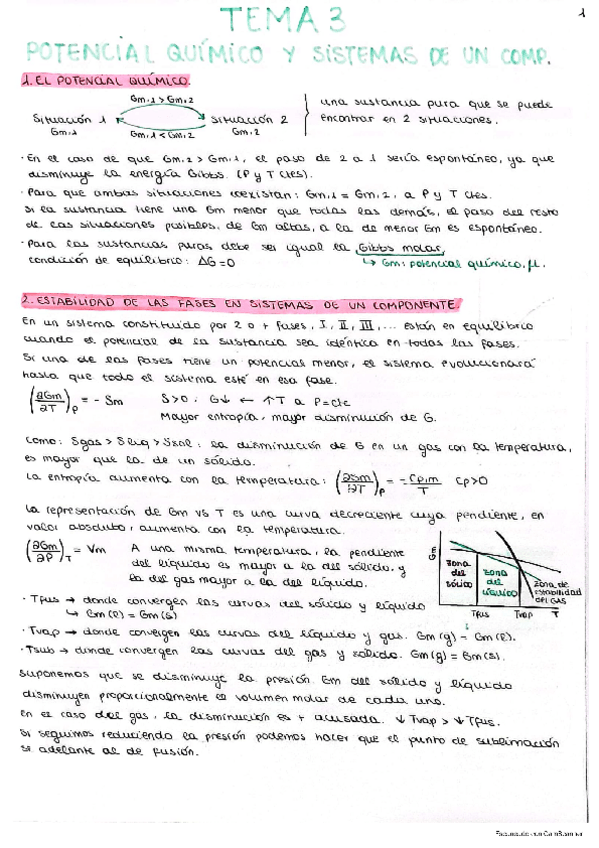 1
TEMA 3
POTENCIAL QUÍMICO Y SISTEMAS DE UN COMP.
1. EL POTENCIAL QUÍMICO.
Gm,1 > Gm,2
Situación 1
Situación 2
Gm,1
Gm,1 < Gm,2
Gm,2
una sustancia pura que se puede
encontrar en 2 situaciones.
· En el caso de que Gm,2 > Gm,1, el paso de 2 a 1 sería espontáneo, ya que
disminuye la energía Gibbs. (P y T ctes).
· Para que ambas situaciones coexistan: Gm,1 = Gm,2, a P y T ctes.
Si la sustancia tiene una Gm menor que todas las demás, el paso del resto
de las situaciones posibles, de Gm altas, a la de menor Gm es espontáneo.
· Para las sustancias puras debe ser igual la Gibbs molar,
condición de equilibrio: ΔG = 0
↳ Gm: potencial químico, μ.
2. ESTABILIDAD DE LAS FASES EN SISTEMAS DE UN COMPONENTE.
En un sistema constituido por 2 o + fases, I, II, III, ... están en equilibrio
cuando el potencial de la sustancia sea idéntica en todas las fases.
Si una de las fases tiene un potencial menor, el sistema evolucionará
hasta que todo el sistema esté en esa fase.
(∂Gm/∂T)P = - Sm
S>0 : G↓ ← ↑T a P=cte
Mayor entropía, mayor disminución de G.
Como: Sgas > Sliq > Ssol : la disminución de G en un gas con la temperatura,
es mayor que la de un sólido.
La entropía aumenta con la temperatura: (∂Sm/∂T)P = - Cp,m/T Cp>0
La representación de Gm vs T es una curva decreciente cuya pendiente, en
valor absoluto, aumenta con la temperatura.
(∂Gm/∂P)T = Vm
A una misma temperatura, la pendiente
del líquido es mayor a la del sólido, y
la del gas mayor a la del líquido.
Gm
zona del sólido
zona del líquido
zona de estabilidad del GAS
Tfus
Tvap
T
· Tfus → donde convergen las curvas del sólido y líquido
↳ Gm(l) = Gm(s)
· Tvap → donde convergen las curvas del líquido y gas. Gm(g) = Gm(l).
· Tsub → donde convergen las curvas del gas y sólido. Gm(g) = Gm(s).
Suponemos que se disminuye la presión, Gm del sólido y líquido
disminuyen proporcionalmente el volumen molar de cada uno.
En el caso del gas, la disminución es + acusada. ↓ Tvap > ↓ Tfus.
Si seguimos reduciendo la presión podemos hacer que el punto de sublimación
se adelante al de fusión.
Escaneado con CamScanner